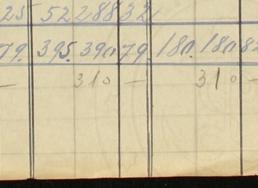 25 52 28 8 32
79. 395. 390 79. 180. 180 82
– 310 – 310 –